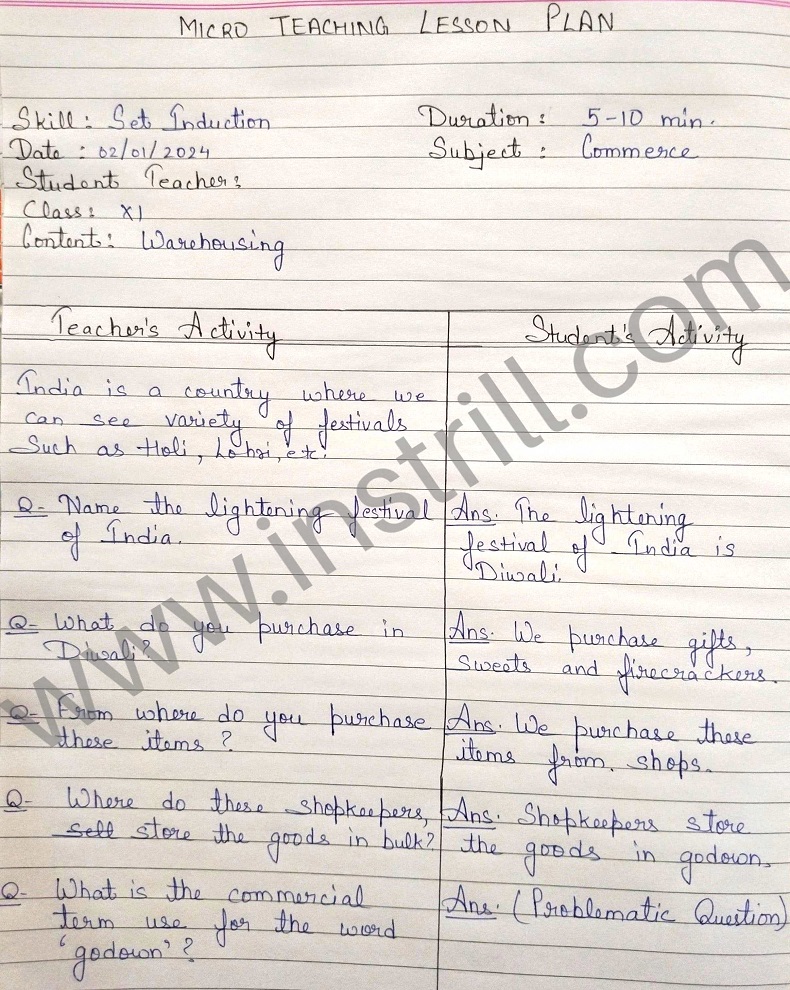 MICRO TEACHING LESSON PLAN
Skill: Set Induction
Duration: 5-10 min.
Date: 02/01/2024
Subject: Commerce
Student Teacher:
Class: XI
Content: Warehousing
Teacher's Activity
Student's Activity
India is a country where we
can see variety of festivals
Such as Holi, Lohri, etc.
Q- Name the lightening festival
of India.
Ans. The lightening
festival of India is
Diwali.
Q- What do you purchase in
Diwali?
Ans. We purchase gifts,
sweets and firecrackers.
Q- From where do you purchase
these items?
Ans. We purchase these
items from shops.
Q- Where do these shopkeepers,
sell store the goods in bulk?
Ans. Shopkeepers store
the goods in godown.
Q- What is the commercial
term use for the word
'godown'?
Ans. (Problematic Question)
www.instrill.com